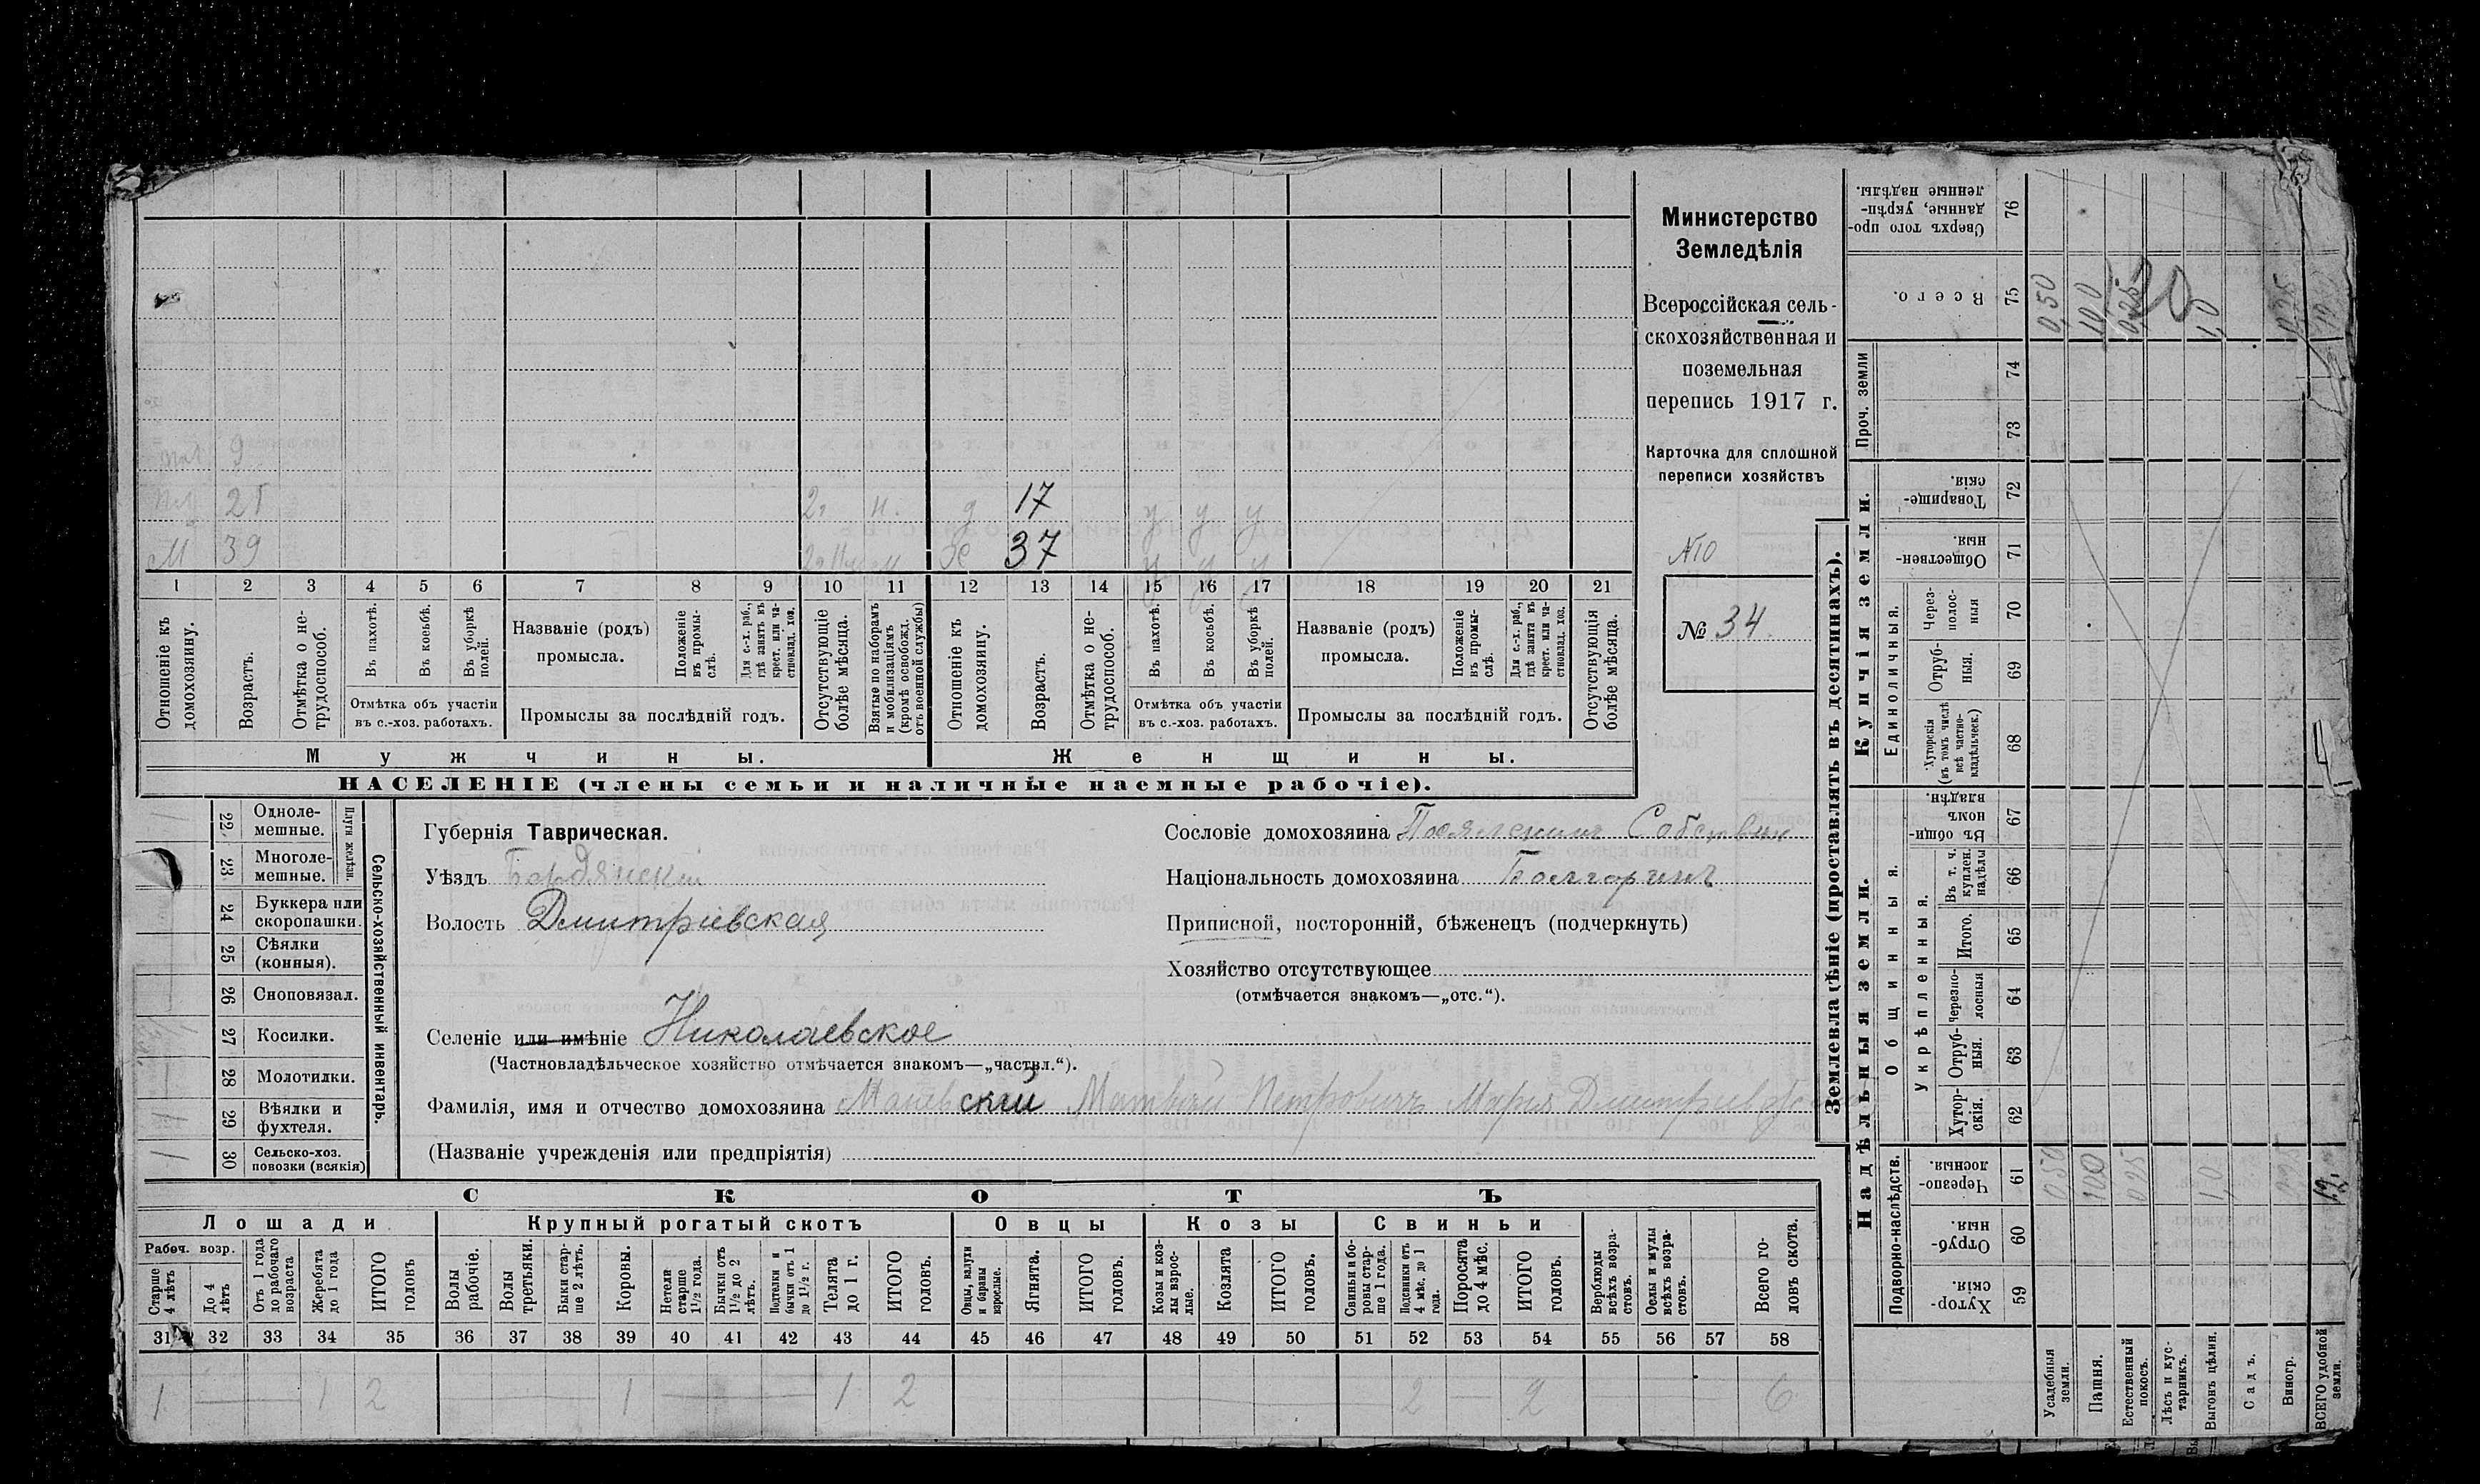 Министерство
Земледѣлія
Всероссійская сель-
скохозяйственная и
поземельная
перепись 1917 г.
Карточка для сплошной
переписи хозяйствъ
№ 34.
9
м 39
17
37
у у у
1 2 3 4 5 6 7 8 9 10 11 12 13 14 15 16 17 18 19 20 21
Отношеніе къ домохозяину.
Возрастъ.
Отмѣтка о не-трудоспособ.
Въ пахотѣ.
Въ косьбѣ.
Въ уборкѣ полей.
Отмѣтка объ участіи
въ с.-хоз. работахъ.
Названіе (родъ)
промысла.
Положеніе въ промы-слѣ.
Для с.-х. раб., гдѣ занятъ въ крест. или ча-стновлад. хоз.
Промыслы за послѣдній годъ.
Отсутствующіе болѣе мѣсяца.
Взятые по наборамъ и мобилизаціямъ (кромѣ освобожд. отъ военной службы)
Отношеніе къ домохозяину.
Возрастъ.
Отмѣтка о не-трудоспособ.
Въ пахотѣ.
Въ косьбѣ.
Въ уборкѣ полей.
Отмѣтка объ участіи
въ с.-хоз. работахъ.
Названіе (родъ)
промысла.
Положеніе въ промы-слѣ.
Для с.-х. раб., гдѣ занята въ крест. или ча-стновлад. хоз.
Промыслы за послѣдній годъ.
Отсутствующія болѣе мѣсяца.
Мужчины. Женщины.
НАСЕЛЕНІЕ (члены семьи и наличные наемные рабочіе).
Сельско-хозяйственный инвентарь.
Плуги желѣзн.
22 Одноле-мешные.
23 Многоле-мешные.
24 Буккера или скоропашки.
25 Сѣялки (конныя).
26 Сноповязал.
27 Косилки.
28 Молотилки.
29 Вѣялки и фухтеля.
30 Сельско-хоз. повозки (всякія)
Губернія Таврическая.
Уѣздъ Бердянскій
Волость Дмитріевская
Селеніе или имѣніе Николаевское
(Частновладѣльческое хозяйство отмѣчается знакомъ—„частвл.“).
Сословіе домохозяина Поселенинъ Собствен
Національность домохозяина Болгаринъ
Приписной, посторонній, бѣженецъ (подчеркнуть)
Хозяйство отсутствующее
(отмѣчается знакомъ—„отс.“).
Фамилія, имя и отчество домохозяина Матвѣй Петровичъ Марія Дмитріев
(Названіе учрежденія или предпріятія)
СКОТЪ
Лошади Крупный рогатый скотъ Овцы Козы Свиньи
Рабоч. возр.
Старше 4 лѣтъ
До 4 лѣтъ
Отъ 1 года до рабочаго возраста
Жеребята до 1 года
ИТОГО головъ
Волы рабочіе.
Волы третьяки.
Быки стар-ше 2 лѣтъ.
Коровы.
Нетели старше 1½ года.
Бычки отъ 1½ до 2 лѣтъ.
Подтелки и бычки отъ 1 до 1½ г.
Телята до 1 г.
ИТОГО головъ.
Овцы, валухи и бараны взрослые.
Ягнята.
ИТОГО головъ.
Козы и коз-лы взрос-лые.
Козлята
ИТОГО головъ.
Свиньи и бо-ровы стар-ше 1 года.
Подсвинки отъ 4 мѣс. до 1 года.
Поросята до 4 мѣс.
ИТОГО головъ.
Верблюды всѣхъ возра-стовъ.
Ослы и мулы всѣхъ возра-стовъ.
Всего го-ловъ скота.
31 32 33 34 35 36 37 38 39 40 41 42 43 44 45 46 47 48 49 50 51 52 53 54 55 56 57 58
1 — — 1 2 1 — 1 2 2 — 2 6
Землевладѣніе (проставлять въ десятинахъ).
Надѣльныя земли. Купчія земли.
Подворно-наслѣдств.
Общинныя.
Укрѣпленныя.
Единоличныя.
Проч. земли
59 Хутор-скія.
60 Отруб-ныя.
61 Черезпо-лосныя.
62 Хутор-скія.
63 Отруб-ныя.
64 Черезпо-лосныя
65 Итого.
66 Въ т. ч. куплен. надѣлы
67 Въ общи-номъ владѣн.
68 Хуторскія (въ томъ числѣ всѣ частно-владѣльческ.)
69 Отруб-ныя.
70 Через-полос-ныя
71 Обществен-ныя.
72 Товарище-скія.
73
74
75 Всего.
76 Сверхъ того про-данные, укрѣп-ленные надѣлы.
Усадебныя земли.
Пашня.
Естественный покосъ.
Лѣсъ и кус-тарникъ.
Выгонъ цѣлин.
Садъ.
Виногр.
ВСЕГО удобной земли.
0,50 100 0,25 1,0 0,25
0,50 100 0,25 1,0